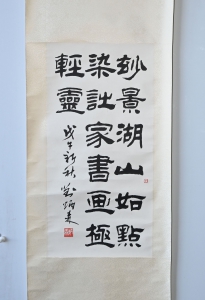 玅景湖山如點
染詩家書画極
輕靈
戊午新秋劉炳森